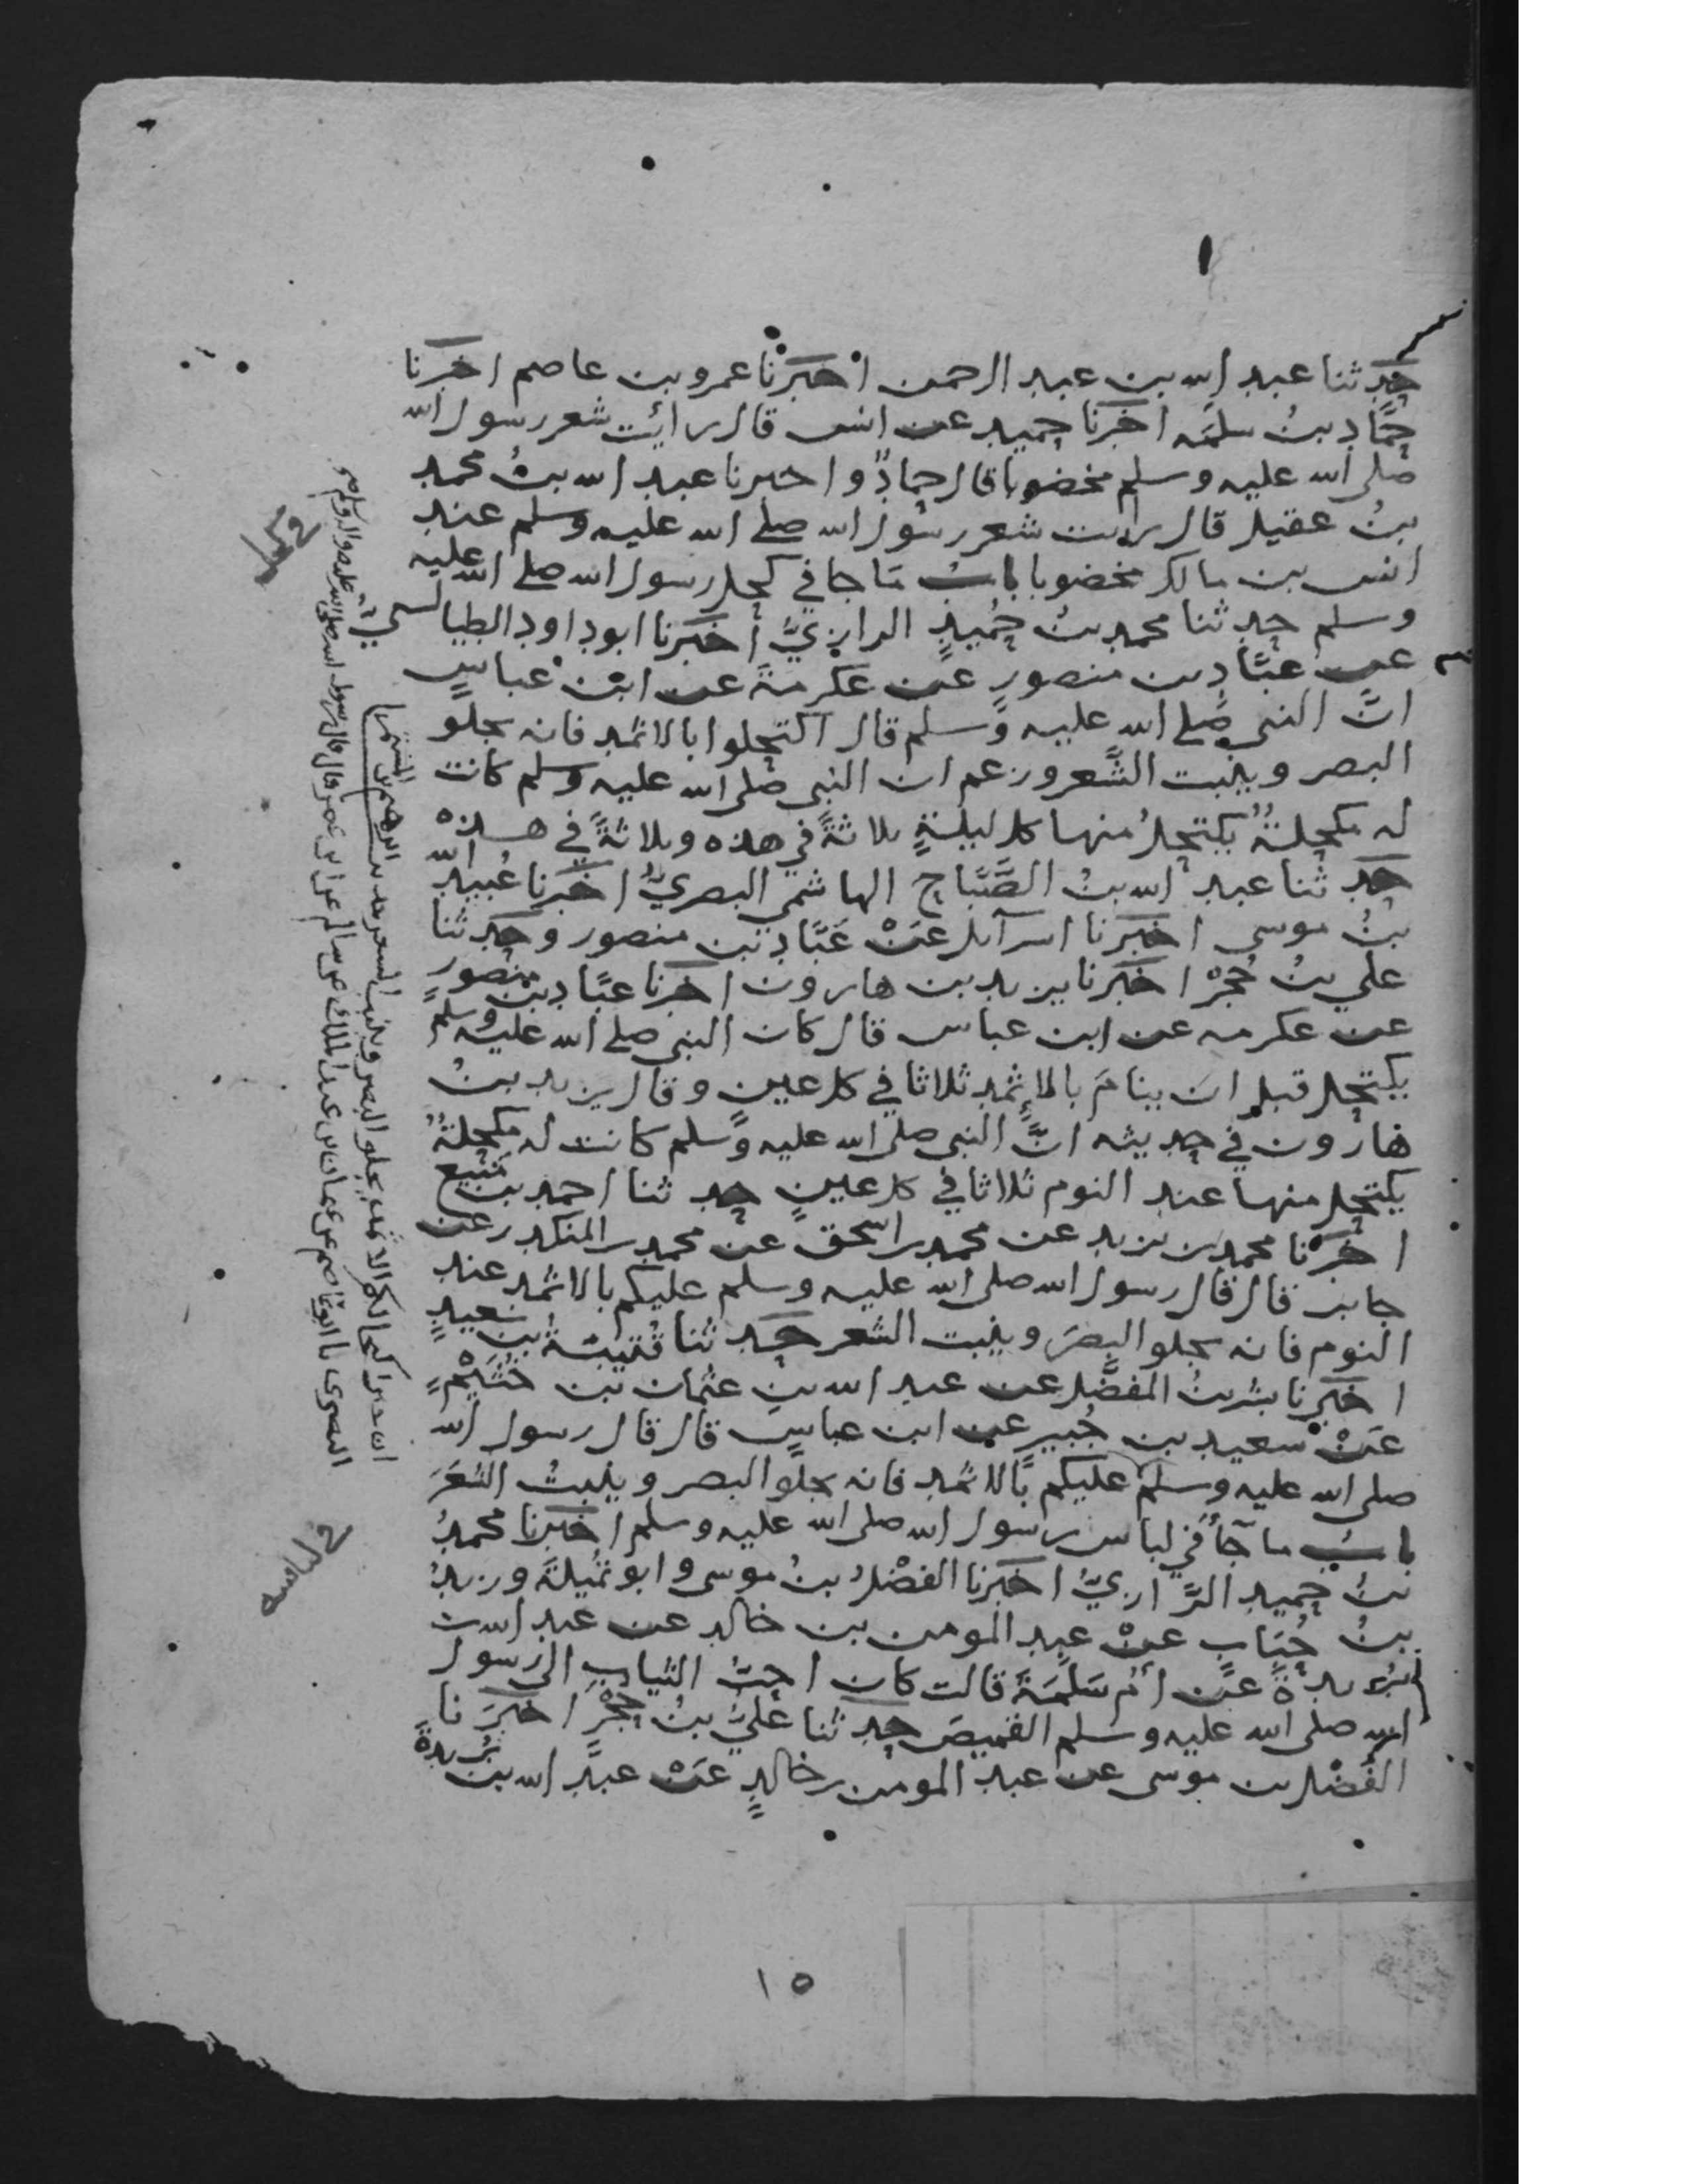 حدثنا عبد الله بن عبد الرحمن اخبرنا عمرو بن عاصم اخبرنا
حمّاد بنُ سلمَه اخبرنا حميد عن انس قال رائت شعر رسول الله
صلى الله عليه وسلم مخضوبا قال حمادٌ واخبرنا عبد الله بنُ محمد
بنُ عقيل قال رايت شعر رسول الله صلى الله عليه وسلم عند
انس بن مالك مخضوبا بابُ مَا جا في كحل رسول الله صلى الله عليه
وسلم حدثنا محمد بنُ حُميدٍ الرازيُّ أخبرنا ابو داود الطيالسي
عن عبَّادِ بن منصورٍ عن عكرمةَ عن ابن عباسٍ
انّ النبي صلى الله عليه وسلم قال اكتحلوا بالاثمد فانه يجلو
البصر وينبت الشَّعر وزعم ان النبي صلى الله عليه وسلم كانت
له مكحلةٌ يكتحلُ منها كل ليلةٍ ثلاثةً في هذه وثلاثةً في هذه
حدثنا عبد الله بنُ الصَّبَّاح الهاشمي البصريُّ اخبرنا عُبيد الله
بنُ موسى اخبرنا اسرآيل عَنْ عَبَّادِ بن منصور وحدثنا
علي بنُ حُجرْ اخبرنا يزيد بن هارون اخبرنا عبّاد بن منصورٍ
عن عكرمه عن ابن عباس قال كان النبي صلى الله عليه وسلم
يكتحل قبل ان ينامَ بالإثمد ثلاثا في كل عينٍ وقال يزيد بنُ
هارون في حديثه انَّ النبي صلى الله عليه وسلم كانت له مكحلةٌ
يكتحل منها عند النوم ثلاثا في كل عينٍ حدثنا احمد بن منيع
اخبرنا محمد بن يزيد عن محمد بن اسحق عن محمد بن المنكدر عن
جابر قال قال رسول الله صلى الله عليه وسلم عليكم بالاثمد عند
النوم فانه يجلو البصرَ وينبت الشعر حدثنا قُتيبَةُ بن سَعيدٍ
اخبرنا بشر بنُ المفضَّل عن عبد الله بن عثمان بن خُثَيْمٍ
عَنْ سعيد بن جُبير عن ابن عباسٍ قال قال رسول الله
صلى الله عليه وسلم عليكم بالاثمد فانه يجلو البصر وينبتُ الشعَرَ
بابُ ما جآأ في لباس رسول الله صلى الله عليه وسلم اخبرنا محمدُ
بنُ حميد الرَّازيُّ اخبرنا الفضْلُ بنُ موسى وابو تُميلةَ وزيدُ
بنُ حُبَابٍ عنْ عبد المومن بن خالد عن عبد الله بن
بُريدةَ عن أمّ سَلَمَةَ قالت كان احبّ الثيابِ الى رسول
الله صلى الله عليه وسلم القميصَ حدثنا عليُّ بنُ حُجْرٍ اخبرَنا
الفَضْل بن موسى عن عبد المومن بن خالدٍ عَنْ عبد الله بن بُريدةَ
في كحله
في لباسه
١٥